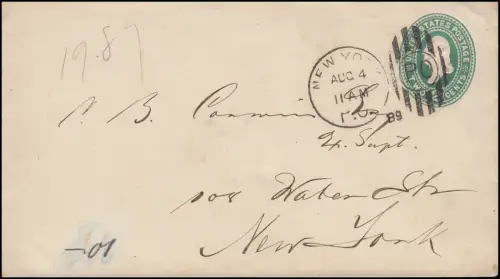 19.87
UNITED STATES POSTAGE
TWO CENTS
NEW YORK
AUG 4
11 AM
89
B.
Supt.
108 Water Str
New York
-01